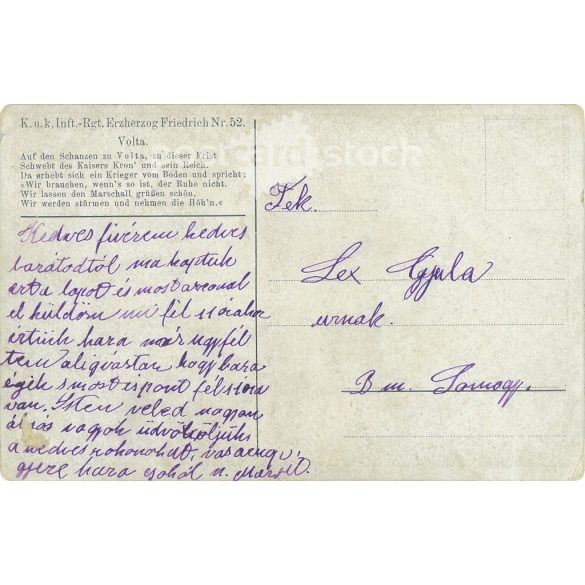 K. u. k. Inft.-Rgt. Erzherzog Friedrich Nr. 52.
Volta.
Auf den Schanzen zu Volta, zu dieser Frist
Schwebt des Kaisers Kron' und sein Reich.
Da erhebt sich ein Krieger vom Boden und spricht:
»Wir brauchen, wenn's so ist, der Ruhe nicht.
Wir lassen den Marschall grüßen schön,
Wir werden stürmen und nehmen die Höh'n.«
Kedves fivérem kedves
barátodtól ma kaptuk
ezt a lapot és most azonal
el küldöm mi fél 11 órakor
értünk haza már ugy fél
tem aligvártam hogy haza
égek s most is pont fél 11 óra
van. Isten veled nagyon
álmos vagyok üdvözöljük
a kedves rokonokat,
gyere haza csokol n. Margit.
Tek.
Lex Gyula
urnak.
B m. Somogy.